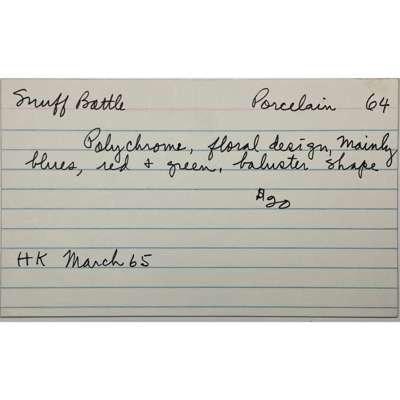 Snuff Bottle Porcelain 64
Polychrome, floral design, mainly
blues, red + green, baluster shape
$20
HK March 65